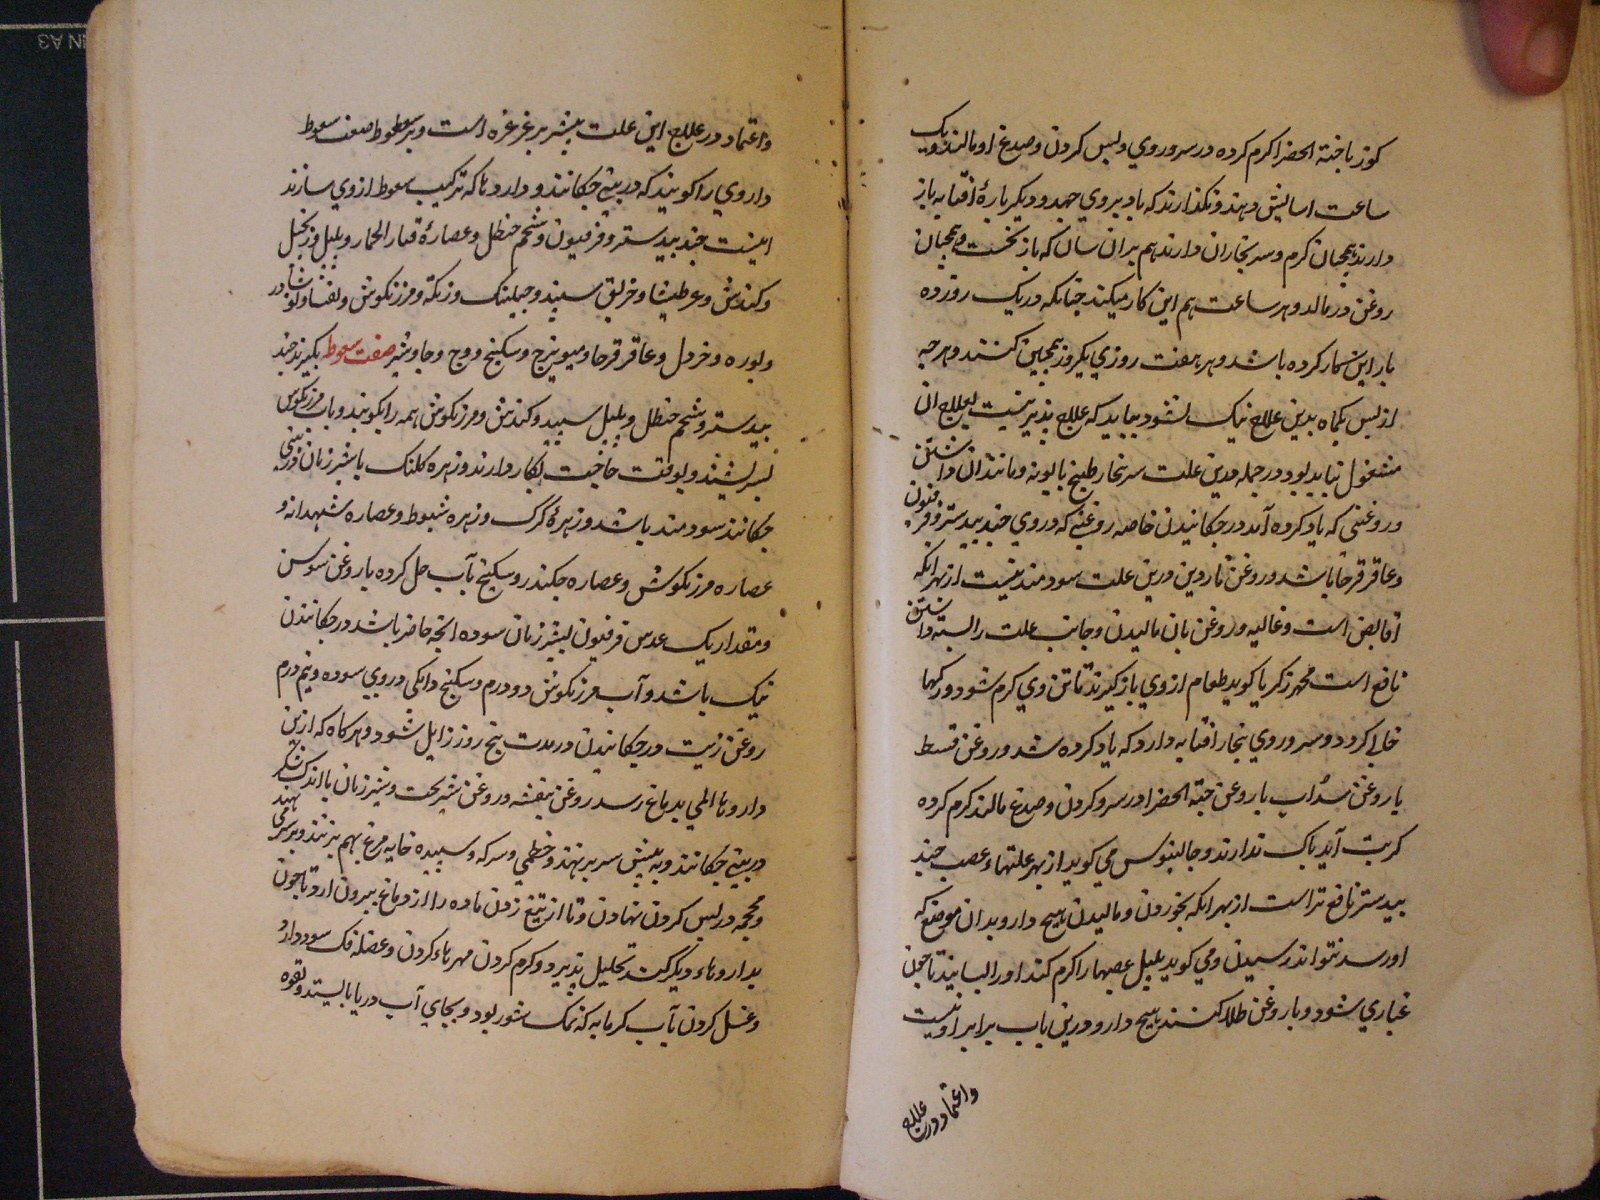 کوز یا حبة الخضرا کرم کرده در سر و روی و بس کردن و صدغ او مالند و یک
ساعت اسایش دهند و نکذارند که باد بروی جهد و دیکر باره آفتابه باز
دارند همچنان کرم و سر بخار ان دارند هم بران سان که باز نخست و همچنان
روغن در مالد و هر ساعت هم این کار میکند چنانکه در یک روز ده
بار این شمار کرده باشد و هر هفت روزی یکروز همچنین کنند و هر چه
از بس یکماه بدین علاج نیک نشود بباید که علاج بذیر نیست بعلاج ان
مشغول نباید بود و در جمله درین علت سر بخار طبیخ بابونه و مانند ان داشتن
و روغنی که یاد کرده آمد در چکانیدن خاصه روغنی که در وی جند بیدستر و فرفیون
و عاقر قرحا باشد و روغن ناردین درین علت سودمند نیست از بهر انکه
قابض است و غالیه و روغن بان مالیدن و جانب علت را بسته داشتن
نافع است محمد زکریا کوید طعام از وی باز کیرند تا تن وی کرم شود و رکها
خالی کردد و سر و روی بخار افتابه دارد که یاد کرده شد و روغن قسط
یا روغن سداب یا روغن حبة الخضرا در سر و کردن و صدغ مالند کرم کرده
کر تب آید باک ندارند و جالینوس می کوید از بهر علتهاء عصب جند
بیدستر نافع تر است از بهر انکه بخوردن و مالیدن هیچ دارو بدان موضع که
او رسد نتواند رسیدن و می کوید بلبل عصبها را کرم کند او را بسایند تا چون
غباری شود و با روغن طلا کنند هیچ دارو درین باب برابر او نیست
و اعتماد در علاج
و اعتماد در علاج این علت بیشتر بر غرغره است و بر سعوط صفت سعوط
داروی را کویند که در بینی چکانند و داروها که ترکیب سعوط از وی سازند
اینست جند بیدستر و فرفیون و شحم حنظل و عصارۀ قثار الحمار و بلبل و زنجبیل
و کندش و عرطنیثا و خربق سبید و جبلهنک و زنکه و مرزنکوش و نوشادر
و بوره و خردل و عاقر قرحا و میویزج و سکبینج و وج و جاوشیر صفت سعوط بکیرند جند
بیدستر و شحم حنظل و بلبل سبید و کندش و مرزنکوش همه را بکوبند و باب مرزنکوش
بسرشند و بوقت حاجت بکار دارند و زهره کلنک با شیر زنان در بینی
چکانند سودمند باشد و زهرۀ کرک و زهره شبوط و عصاره شهدانه و
عصاره مرزنکوش و عصاره چکندر و سکبینج بآب حل کرده با روغن سوسن
و مقدار یک عدس فرفیون بشیر زنان سوده انچه حاضر باشد در چکانیدن
نیک باشد و آب مرزنکوش دو درم و سکبینج دانکی در وی سوده و نیم درم
روغن زیت در چکانیدن در مدت پنج روز زایل شود و هر کاه که ازین
داروها المی بدماغ رسد روغن بنفشه و روغن شیربخت و شیر زنان با اندک شکر
در بینی چکانند و به پیش سر بر نهند و خطمی و سرکه و سبیده خایه مرغ بهم بزنند و بر سر نهند
و محجمه در بس کردن نهادن و تا از تیغ زدن ماده را از دماغ بیرون آرد تا چون
بداروهاء دیکر تحلیل پذیرد و کرم کردن مهره‌اء کردن و عضله فک سود دارد
و غسل کردن بآب کرمابه که نمک شور بود و بجای آب دریا بایستد و لقوه